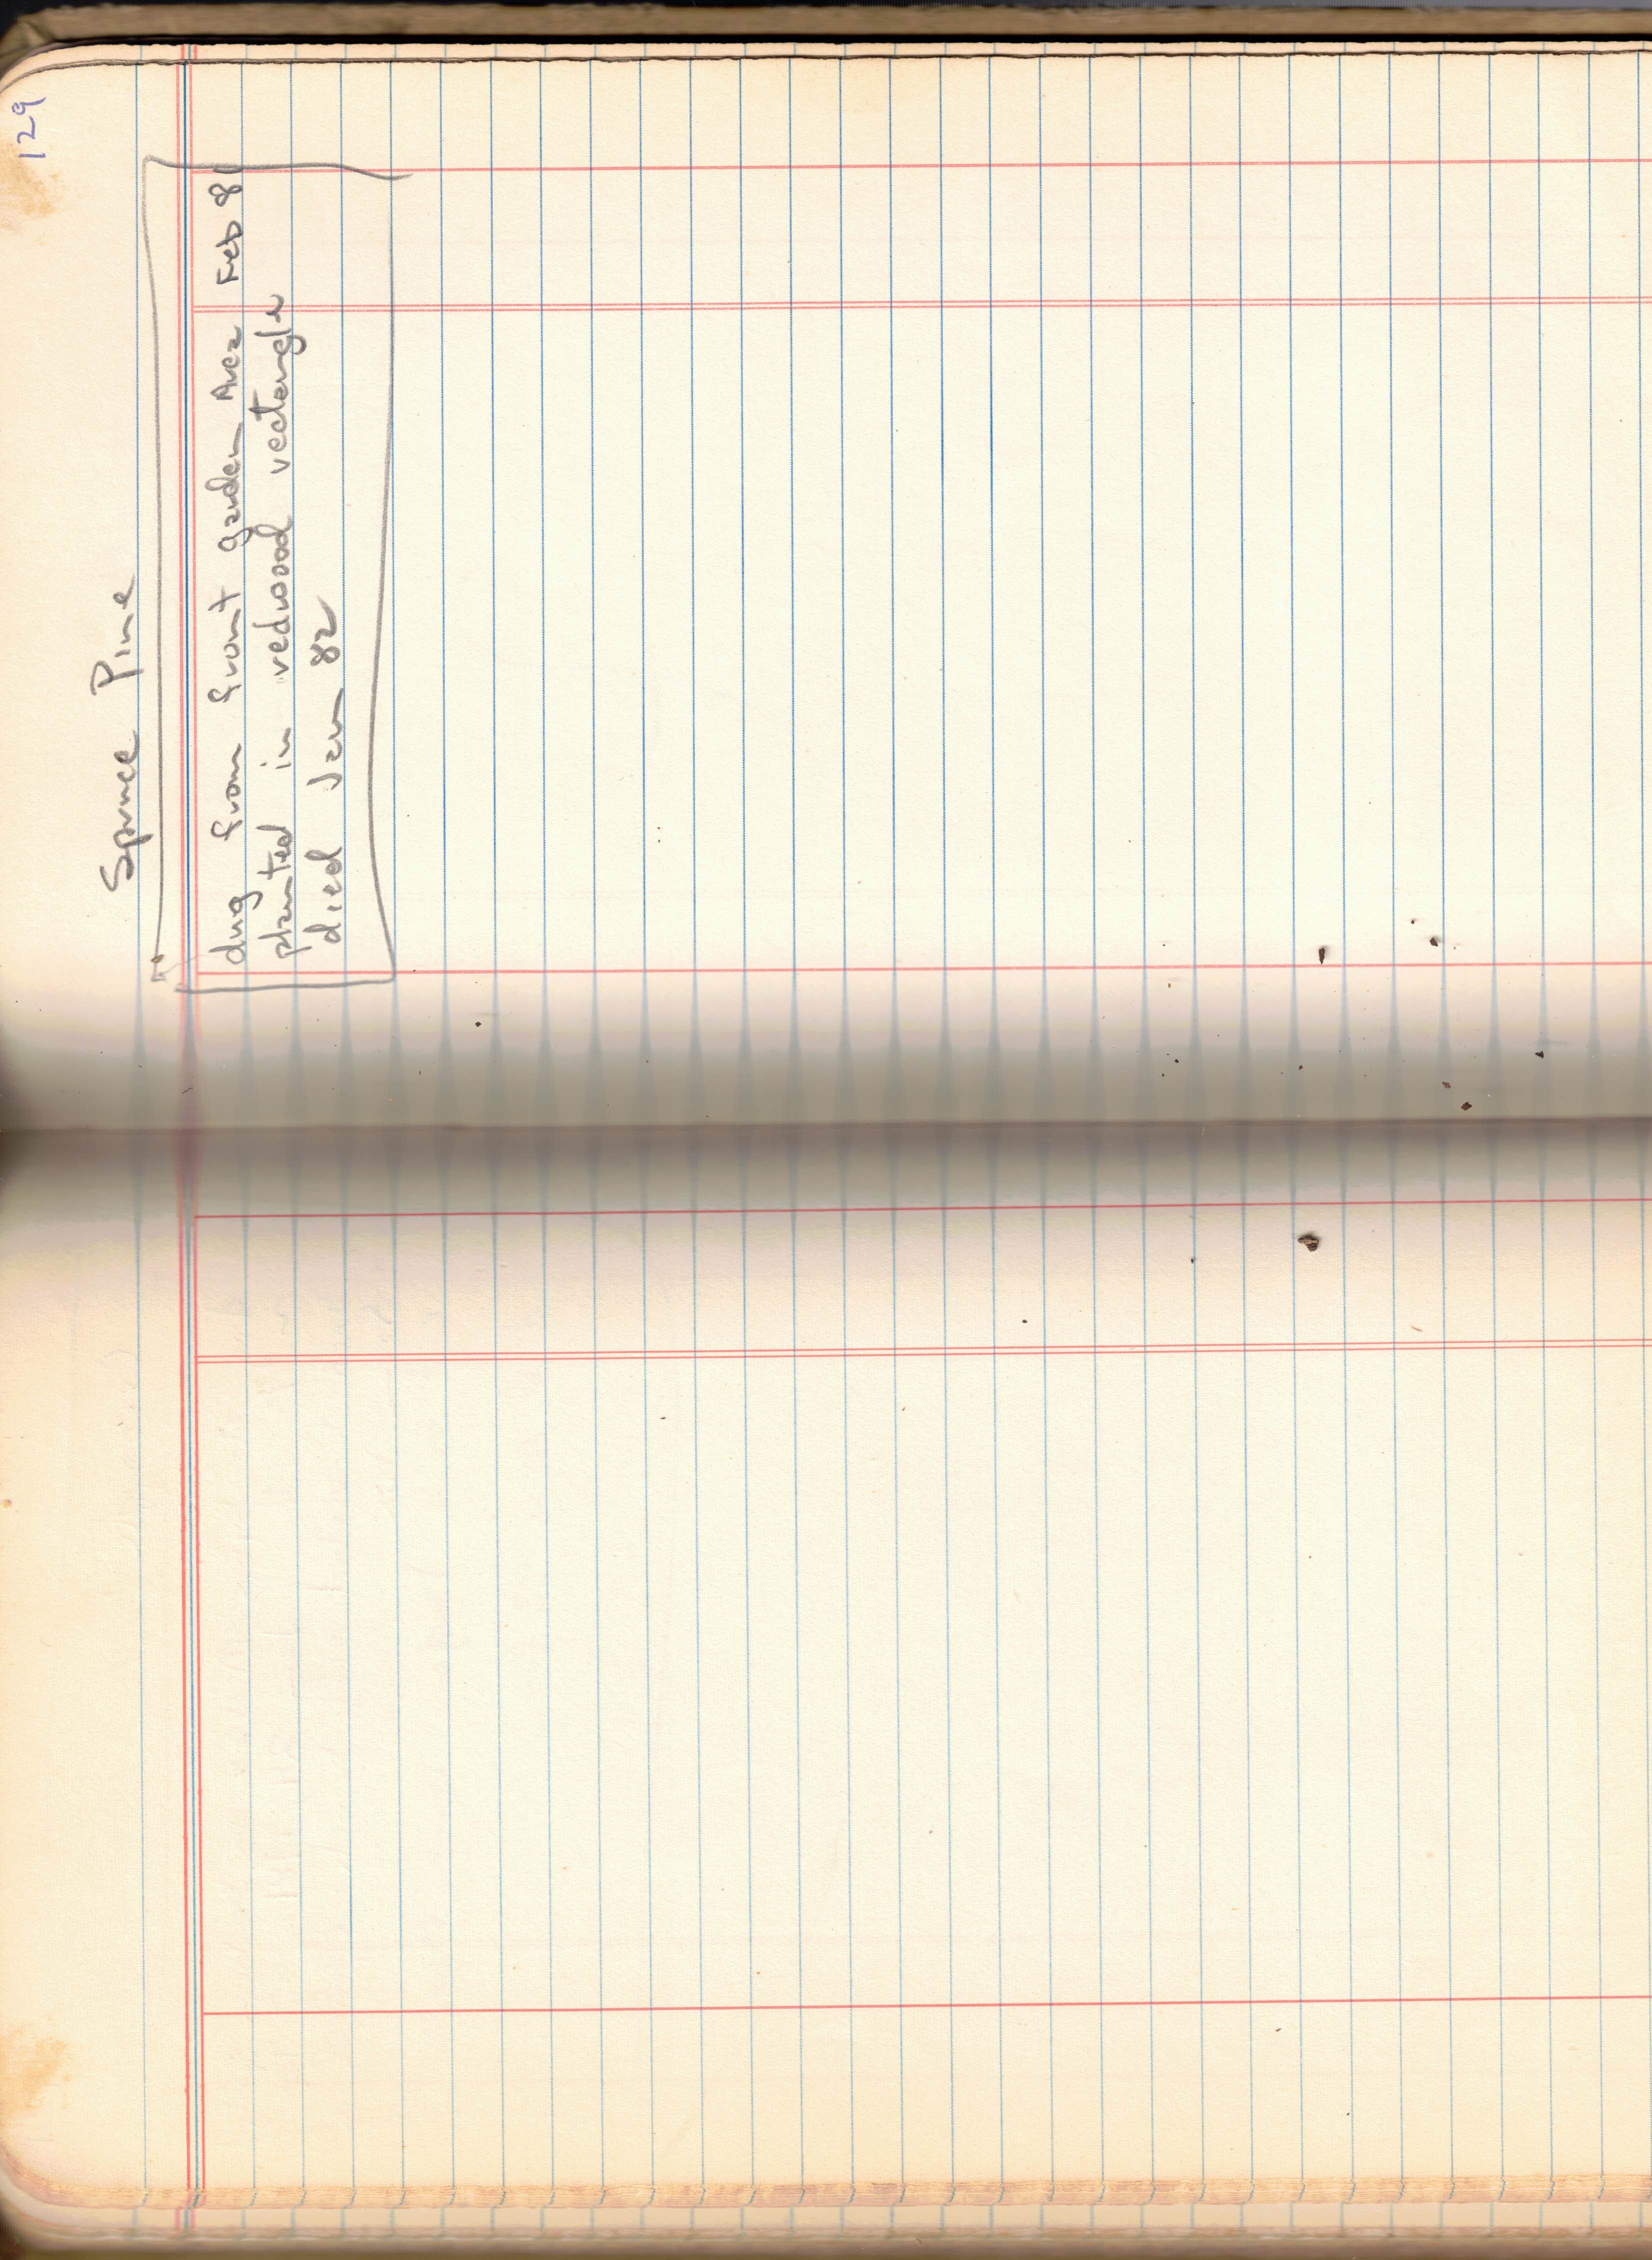 129
Spruce Pine
dug from front garden Area Feb 81
planted in redwood rectangle
died Jan 82